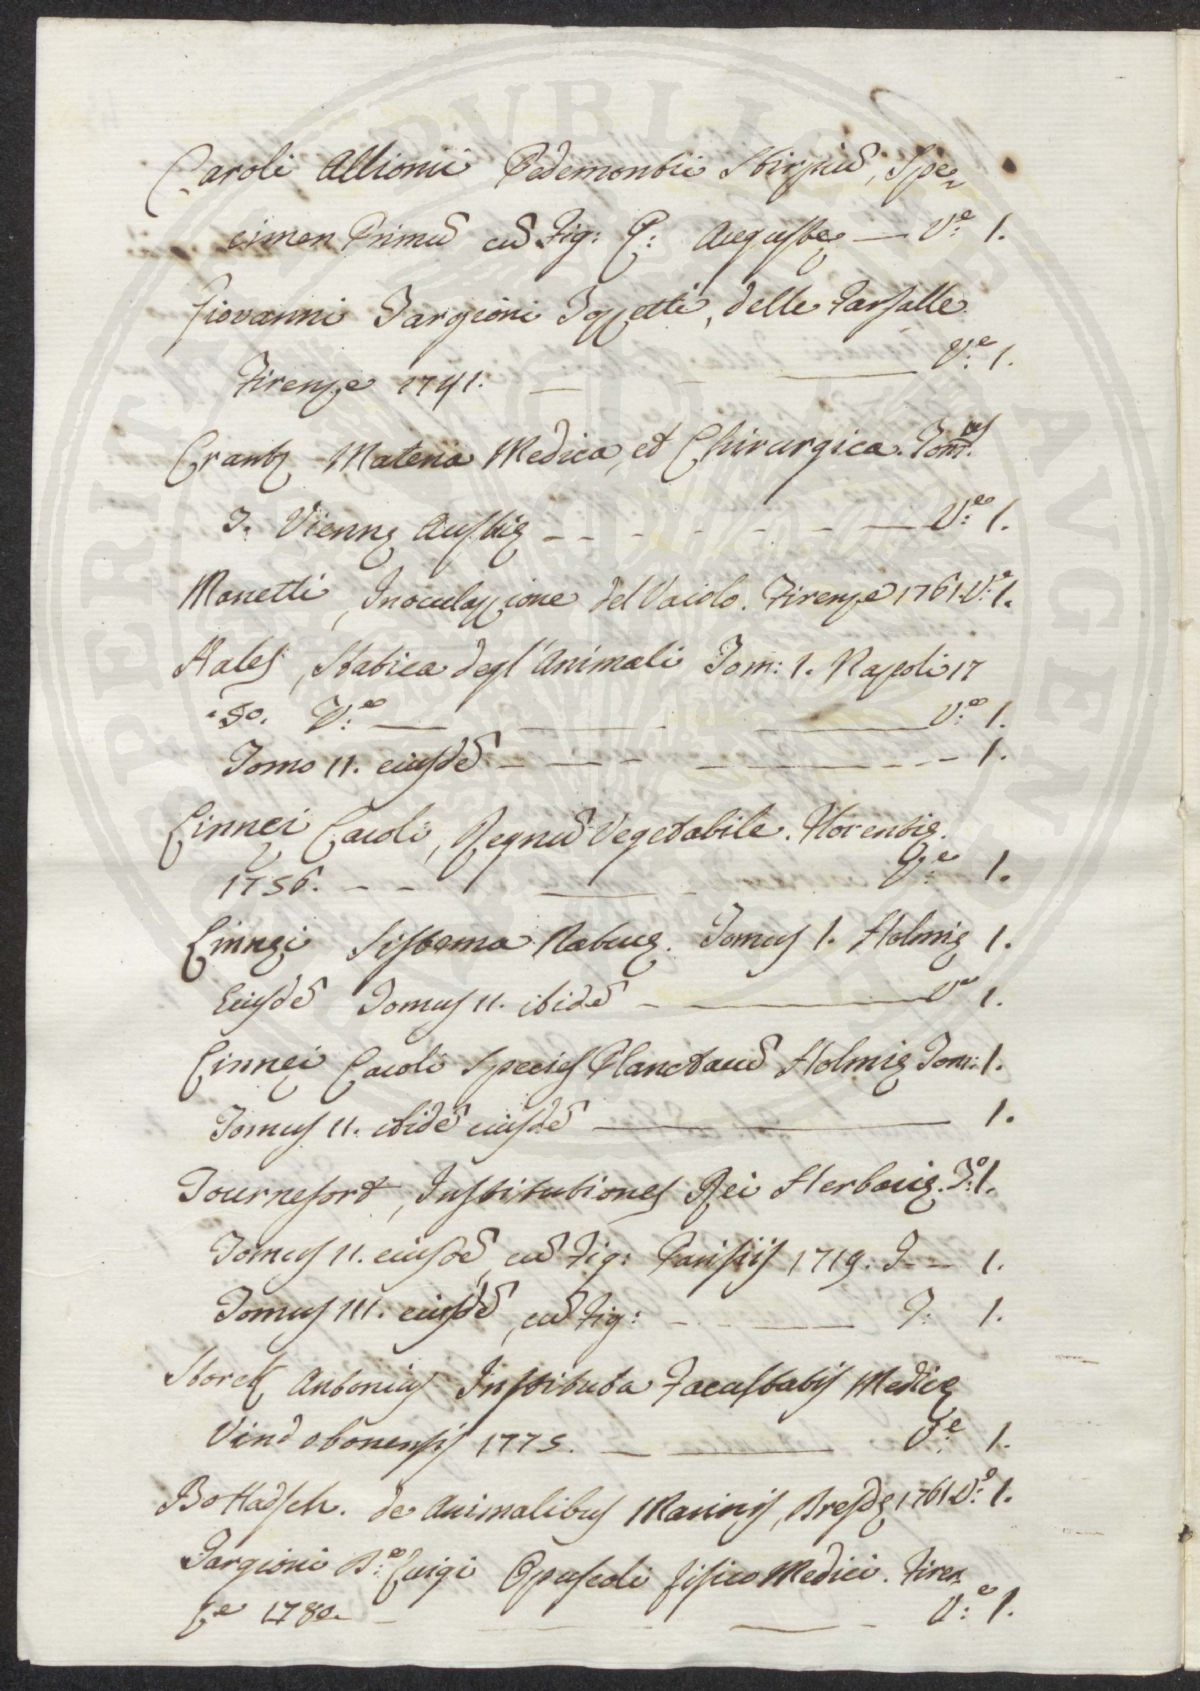 Caroli Allionii Pedemontii Stirpiū, Spe=
cimen Primū cū Fig: P: Augustę — V:e 1.
Giovanni Targioni Tozzetti, delle Farfalle
Firenze 1741. — V:e 1.
Crantz Materia Medica, et Chirurgica. Tomus
I. Viennę Austrię — V:e 1.
Manetti, Inoculazzione del Vaiolo. Firenze 1761. V:e 1.
Hales, Statica degl'Animali Tom: 1. Napoli 17
50. V:e — V:e 1.
Tomo II. eiusdē — 1.
Linnęi Caroli, Regnū Vegetabile. Florentię.
1756. — V:e 1.
Linnęi Sistema Naturę. Tomus I. Holmię 1.
Eiusdē Tomus II. ibidē — Ve 1.
Linnęi Caroli Species Planctarū Holmię Tom: 1.
Tomus II. ibidē eiusdē — 1.
Tournefort, Institutiones Rei Herbarię. T:o 1.
Tomus II. eiusdē, cū Fig: Parisiis 1719. T — 1.
Tomus III. eiusdē, cū Fig: — T: 1.
Storck Antonius Instituta Facultatis Medicę
Vindobonensis 1775. — V:e 1.
Bohadsch. de Animalibus Marinis, Dresdę 1761. V:e 1.
Targioni D:e Luigi Opuscoli fisico Medici. Firen=
ze 1780. — V:e 1.